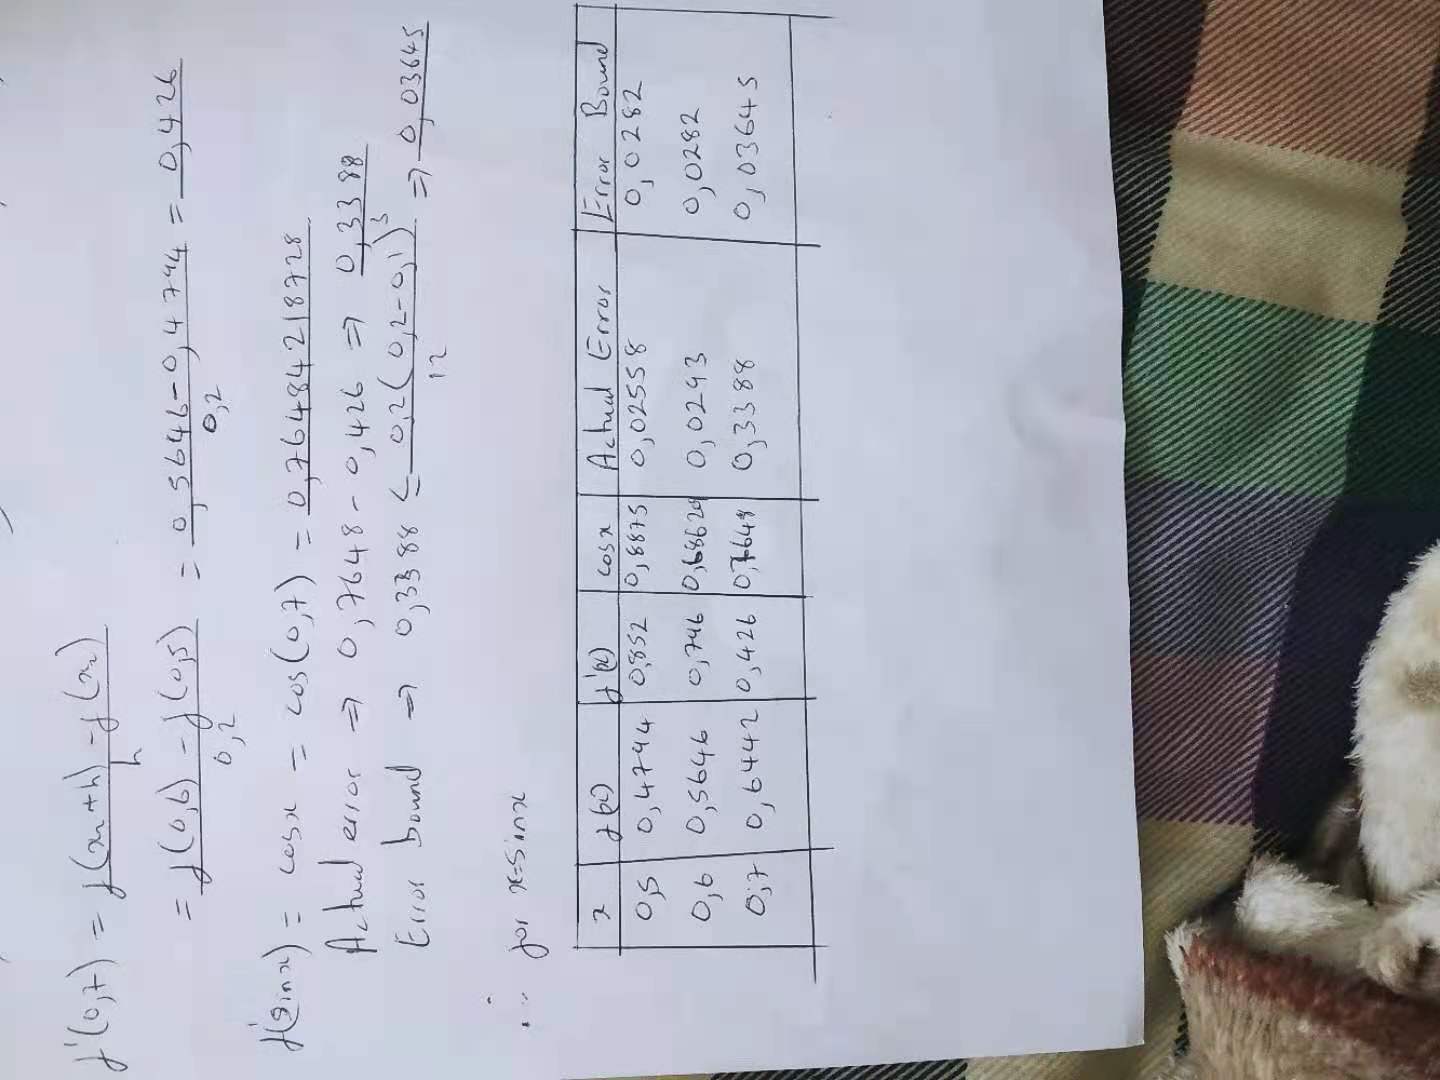 f'(0,7) = f(x₂+h) - f(x₂) / h
= f(0,6) - f(0,5) / 0,2 = 0,5646 - 0,4794 / 0,2 = 0,426
f'(sinx) = cosx = cos(0,7) = 0,76484218728
Actual error ⇒ 0,7648 - 0,426 ⇒ 0,3388
Error bound ⇒ 0,3388 ≤ 0,2(0,2-0,1)³ / 12 ⇒ 0,03645
∴ for x=sinx
x f(x) f'(x) cosx Actual Error Error Bound
0,5 0,4794 0,852 0,8875 0,02558 0,0282
0,6 0,5646 0,746 0,68629 0,0293 0,0282
0,7 0,6442 0,426 0,7648 0,3388 0,03645